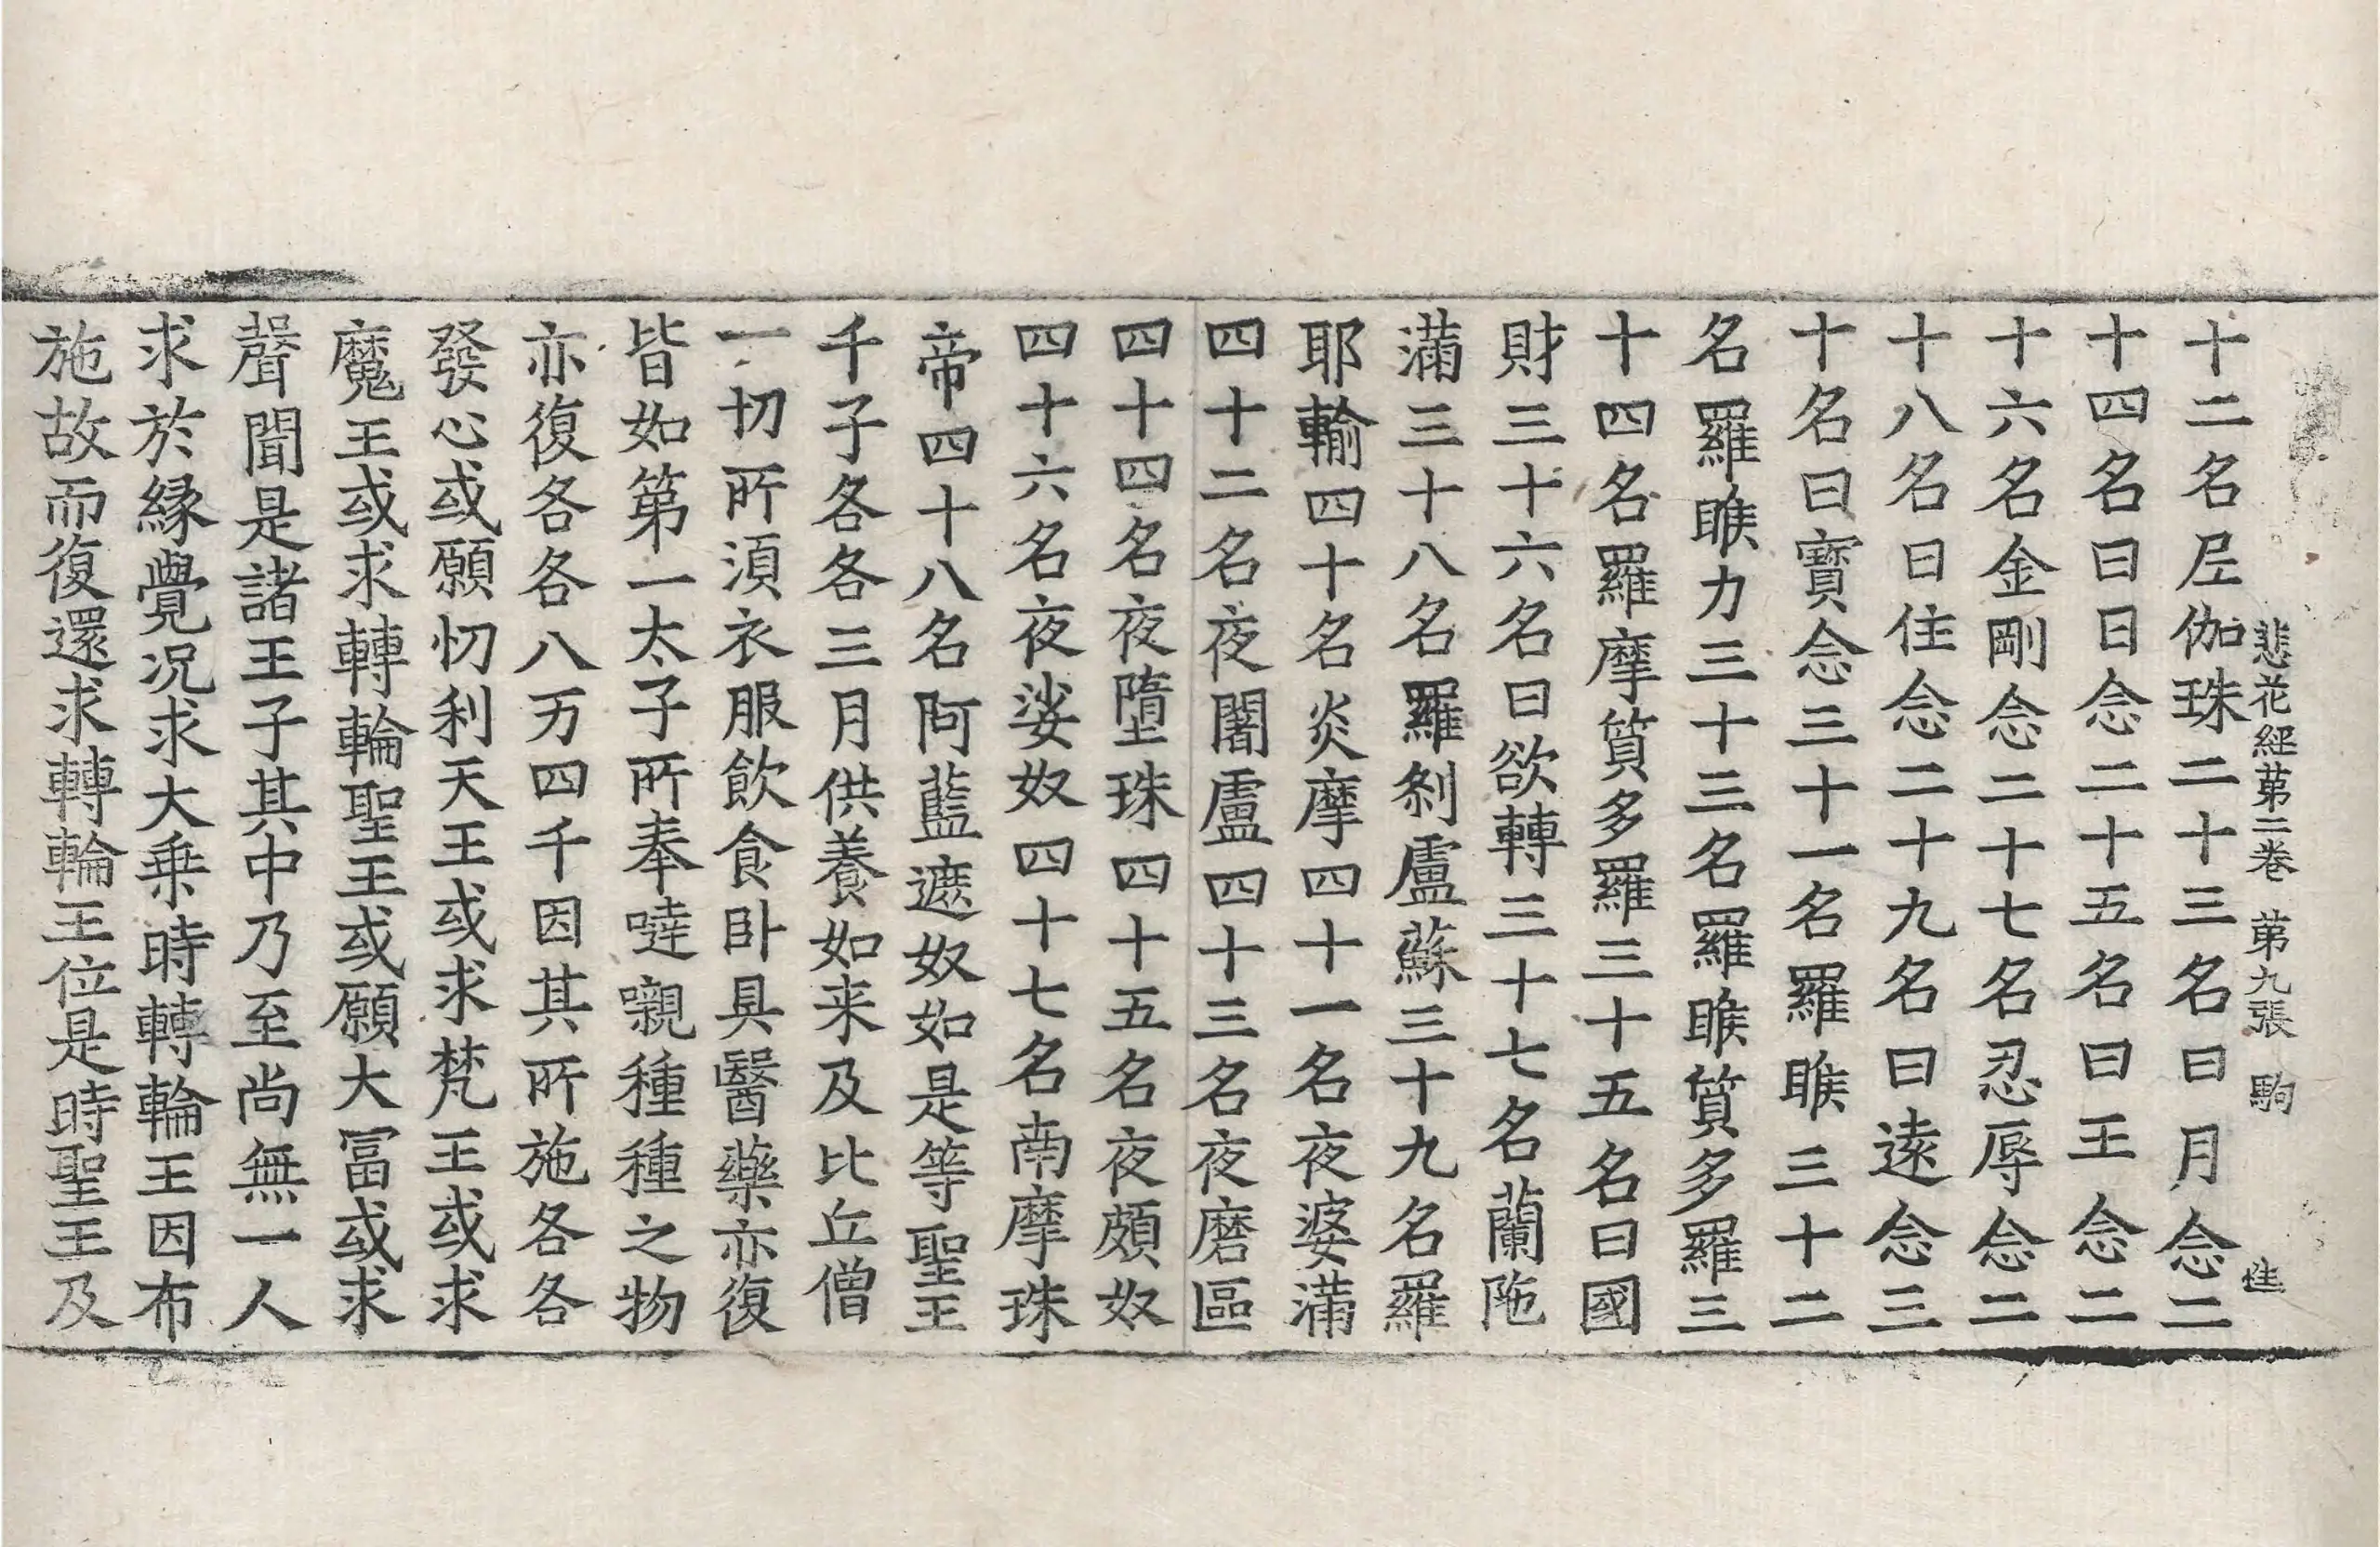 悲花経苐二巻 苐九張 駒
十二名𡰱伽珠二十三名曰月念二
十四名曰日念二十五名曰王念二
十六名金剛念二十七名忍辱念二
十八名曰住念二十九名曰遠念三
十名曰寳念三十一名羅睺三十二
名羅睺力三十三名羅睺質多羅三
十四名羅摩質多羅三十五名曰國
財三十六名曰欲轉三十七名蘭陁
滿三十八名羅剎盧蘇三十九名羅
耶輸四十名炎摩四十一名夜婆滿
四十二名夜闍盧四十三名夜磨區
四十四名夜墮珠四十五名夜頗奴
四十六名夜娑奴四十七名南摩珠
帝四十八名阿藍遮奴如是等聖王
千子各各三月供養如来及比丘僧
一切所湏衣服飲食卧具醫藥亦復
皆如第一太子所奉噠嚫種種之物
亦復各各八万四千因其所施各各
發心或願忉利天王或求梵王或求
魔王或求轉輪聖王或願大冨或求
聲聞是諸王子其中乃至尚無一人
求於縁覺况求大乗時轉輪王因布
施故而復還求轉輪王位是時聖王及